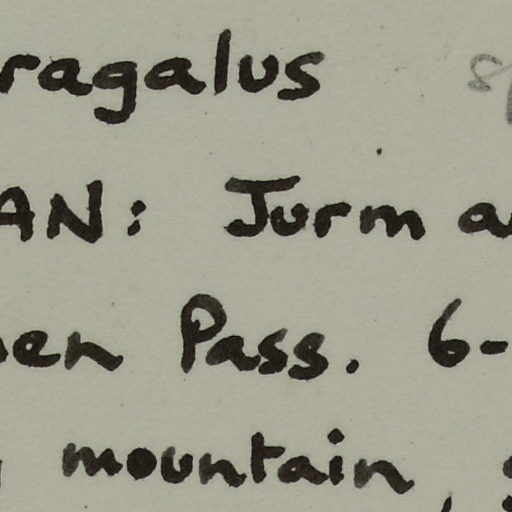 ragalus
AN: Jurm a
en Pass. 6-
mountain,